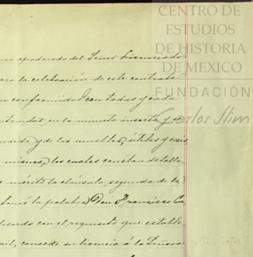 CENTRO DE
ESTUDIOS
DE HISTORIA
DE MEXICO
FUNDACIÓN
Carlos Slim
mo apoderado del Señor Licenciado
para la celebración de este contrato
en conformidad con todas y cada
en la minuta inserta y
y de los muebles, útiles y
mismas, los cuales constan detalla
la cláusula segunda de la
tomó la palabra Don Francisco
con el requisito que estable
concede su licencia á la Señora